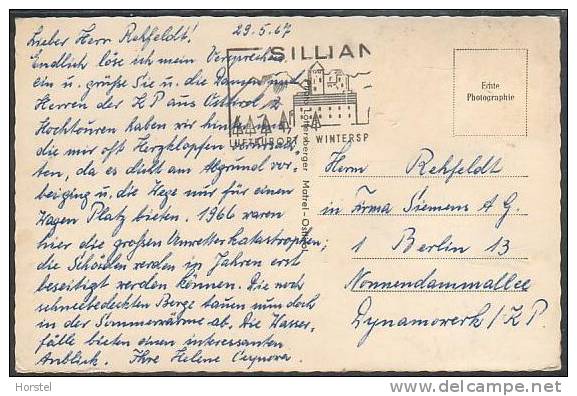 29.5.67
Lieber Herr Rehfeldt!
Endlich löse ich mein Versprechen
ein u. grüße Sie u. die Damen und
Herren der ZP aus Osttirol. 2
Hochtouren haben wir hinter uns
die mir oft Herzklopfen
ten, da es dicht am Abgrund vor-
beiging u. die Wege nur für einen
Wagen Platz bieten. 1966 waren
hier die großen Unwetterkatastrophen,
die Schäden werden in Jahren erst
beseitigt werden können. Die noch
schneebedeckten Berge tauen nun doch
in der Sommerwärme ab. Die Wasser-
fälle bieten einen interessanten
Anblick. Ihre Helene
SILLIAN
LUFTKURORT WINTERSP
Lottersberger Matrei-Osttirol
Echte
Photographie
Herrn Rehfeldt
in Firma Siemens A G.
1 Berlin 13
Nonnendammallee
Dynamowerk / ZP.
Horstel
www.delcampe.net